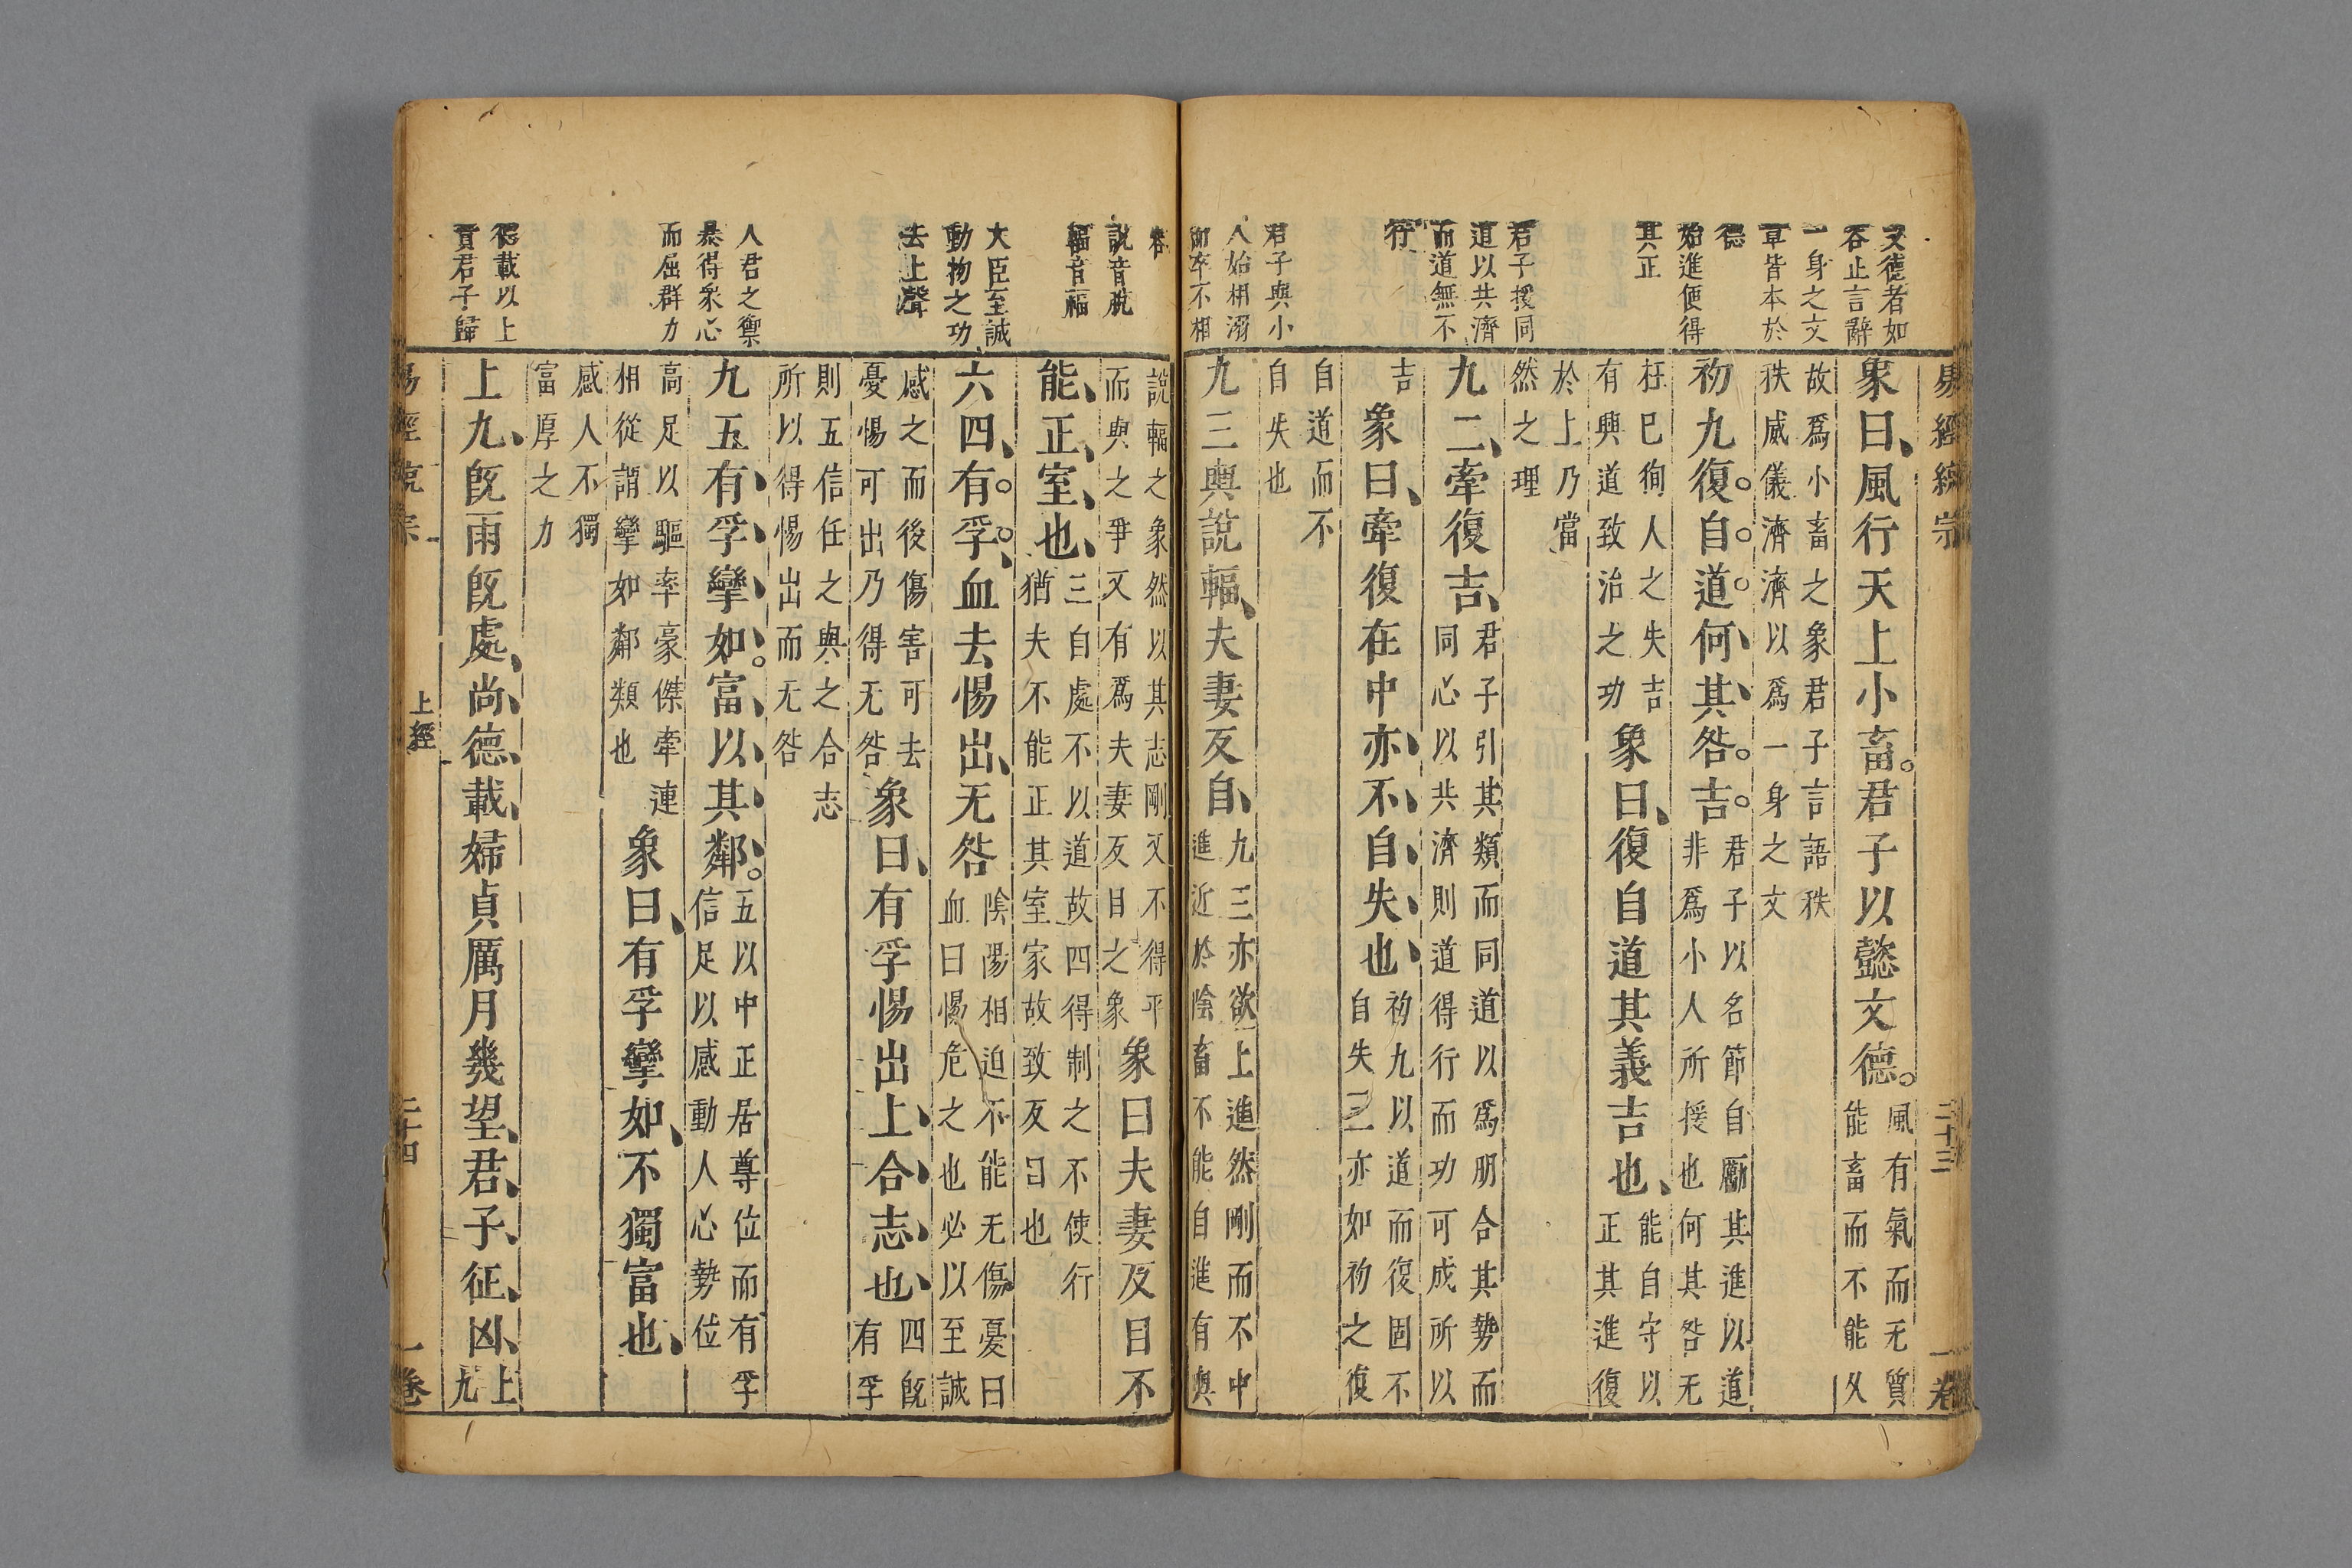 易經統宗
二十三
一卷
文德者如
谷止言辭
一身之文
章皆本於
德
始進便得
其正
君子援同
道以共濟
而道無不
行
君子與小
人始相溺
而卒不相
象曰風行天上小畜君子以懿文德風有氣而无質
能畜而不能久
故爲小畜之象君子言語秩
秩威儀濟濟以爲一身之文
初九復自道何其咎吉君子以名節自勵其進以道
非爲小人所援也何其咎无
枉已徇人之失吉
有興道致治之功象曰復自道其義吉也能自守以
正其進復
於上乃當
然之理
九二牽復吉君子引其類而同道以爲朋合其勢而
同心以共濟則道得行而功可成所以
吉
象曰牽復在中亦不自失也初九以道而復固不
自失二亦如初之復
自道而不
自失也
九三輿說輻夫妻反自九三亦欲上進然剛而不中
進近於陰畜不能自進有輿
說輻之象然以其志剛又不得平
而與之爭又有爲夫妻反目之象象曰夫妻反目不
能正室也三自處不以道故四得制之不使行
猶夫不能正其室家故致反目也
六四有孚血去惕出无咎陰陽相迫不能无傷憂曰
血曰惕危之也必以至誠
感之而後傷害可去
憂惕可出乃得无咎象曰有孚惕出上合志也四旣
有孚
則五信任之與之合志
所以得惕出而无咎
九五有孚攣如富以其鄰五以中正居尊位而有孚
信足以感動人心勢位
高足以驅率豪傑牽連
相從謂攣如鄰類也象曰有孚攣如不獨富也
感人不獨
富厚之力
上九旣雨旣處尚德載婦貞厲月幾望君子征凶上
九
咎
說音脫
輻音福
大臣至誠
動物之功
去上聲
人君之禦
暴得衆心
而屈群力
德載以上
賁君子歸
易經統宗
上經
二十四
一卷